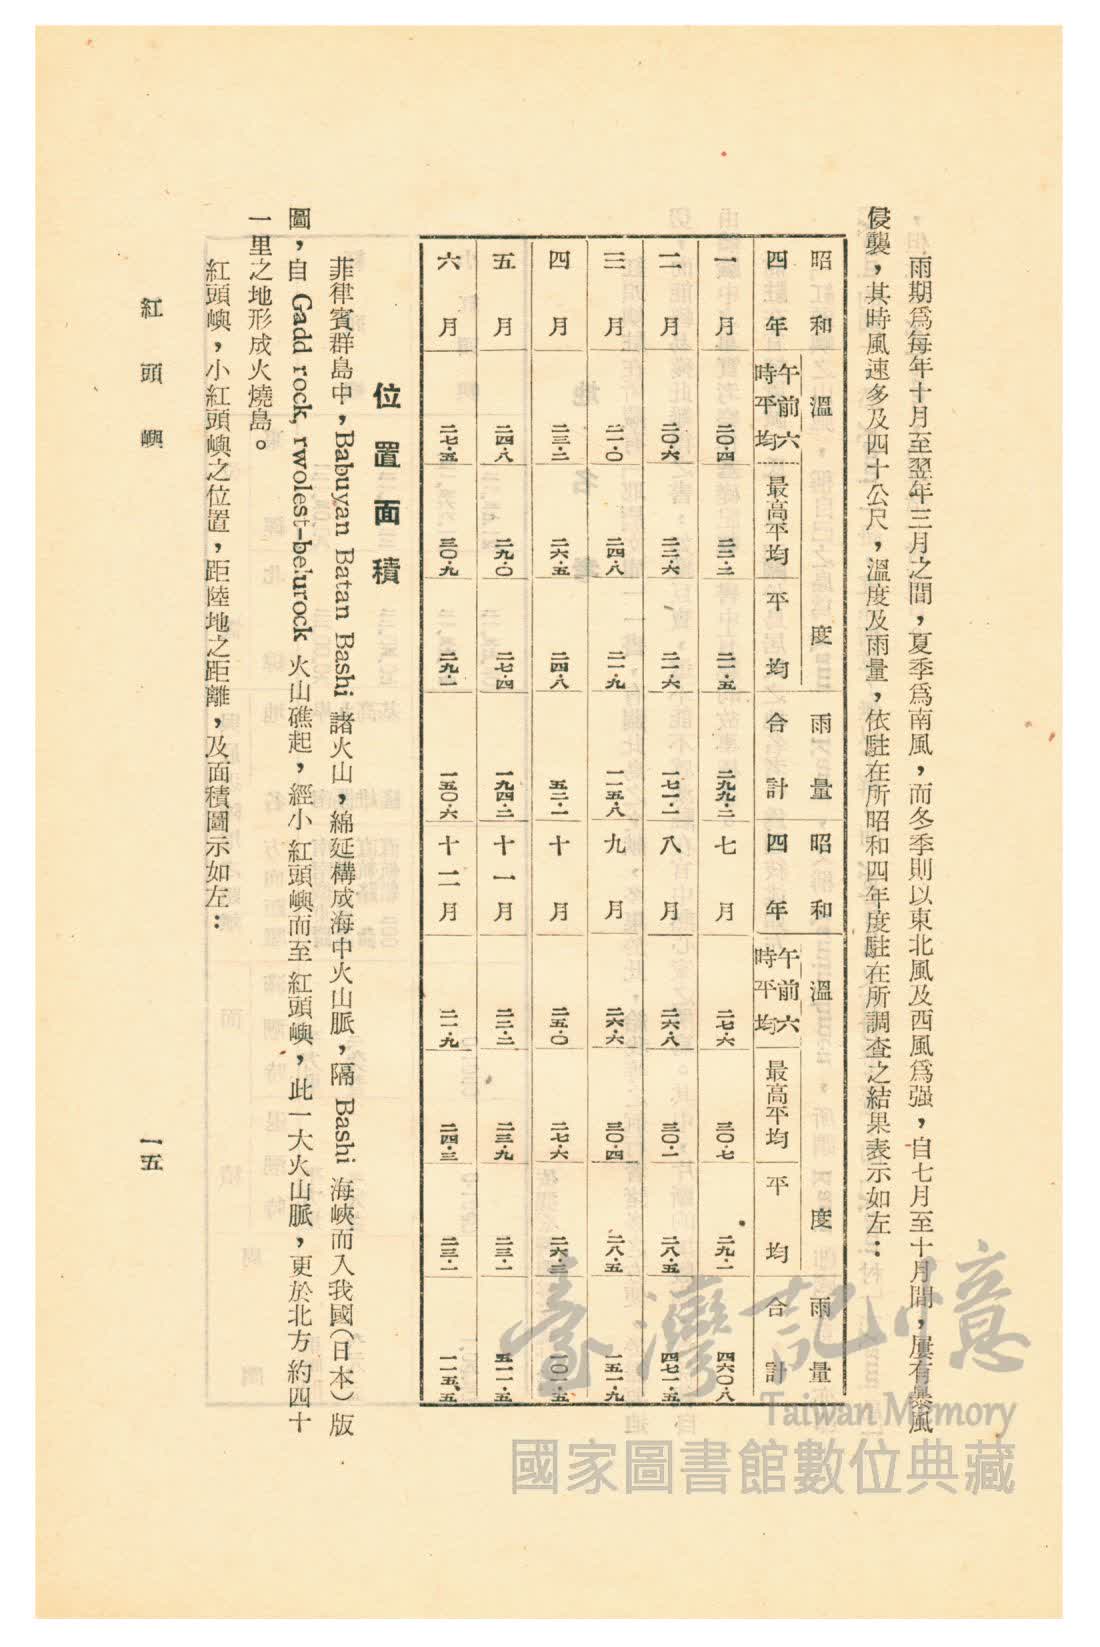 雨期爲每年十月至翌年三月之間，夏季爲南風，而冬季則以東北風及西風爲强，自七月至十月間，屢有暴風
侵襲，其時風速多及四十公尺，溫度及雨量，依駐在所昭和四年度駐在所調查之結果表示如左：
昭和四年 溫度 午前六時平均 最高平均 平均 雨量合計 昭和四年 溫度 午前六時平均 最高平均 平均 雨量合計
一月 二〇·四 二三·二 二一·五 二九九·二 七月 二七·六 三〇·七 二九·一 四六〇·八
二月 二〇·六 二二·六 二一·六 一七一·一 八月 二六·八 三〇·一 二八·五 四七一·五
三月 二一·〇 二四·八 二一·九 一五·八 九月 二六·六 三〇·四 二八·五 一五一·九
四月 二三·二 二六·五 二四·八 五二·一 十月 二五·〇 二七·六
五月 二四·八 二九·〇 二七·四 一九四·二 十一月 二二·二 二三·九 二三·一 五一一·五
六月 二七·五 三〇·九 二九·一 一五〇·六 十二月 二一·九 二四·三 二三·一 一一五、五
位置面積
菲律賓群島中，Babuyan Batan Bashi 諸火山，綿延構成海中火山脈，隔 Bashi 海峽而入我國（日本）版
圖，自 Gadd rock, rwolest-be!urock 火山礁起，經小紅頭嶼而至紅頭嶼，此一大火山脈，更於北方約四十
一里之地形成火燒島。
紅頭嶼，小紅頭嶼之位置，距陸地之距離，及面積圖示如左：
紅頭嶼
一五
臺灣記憶
Taiwan Memory
國家圖書館數位典藏